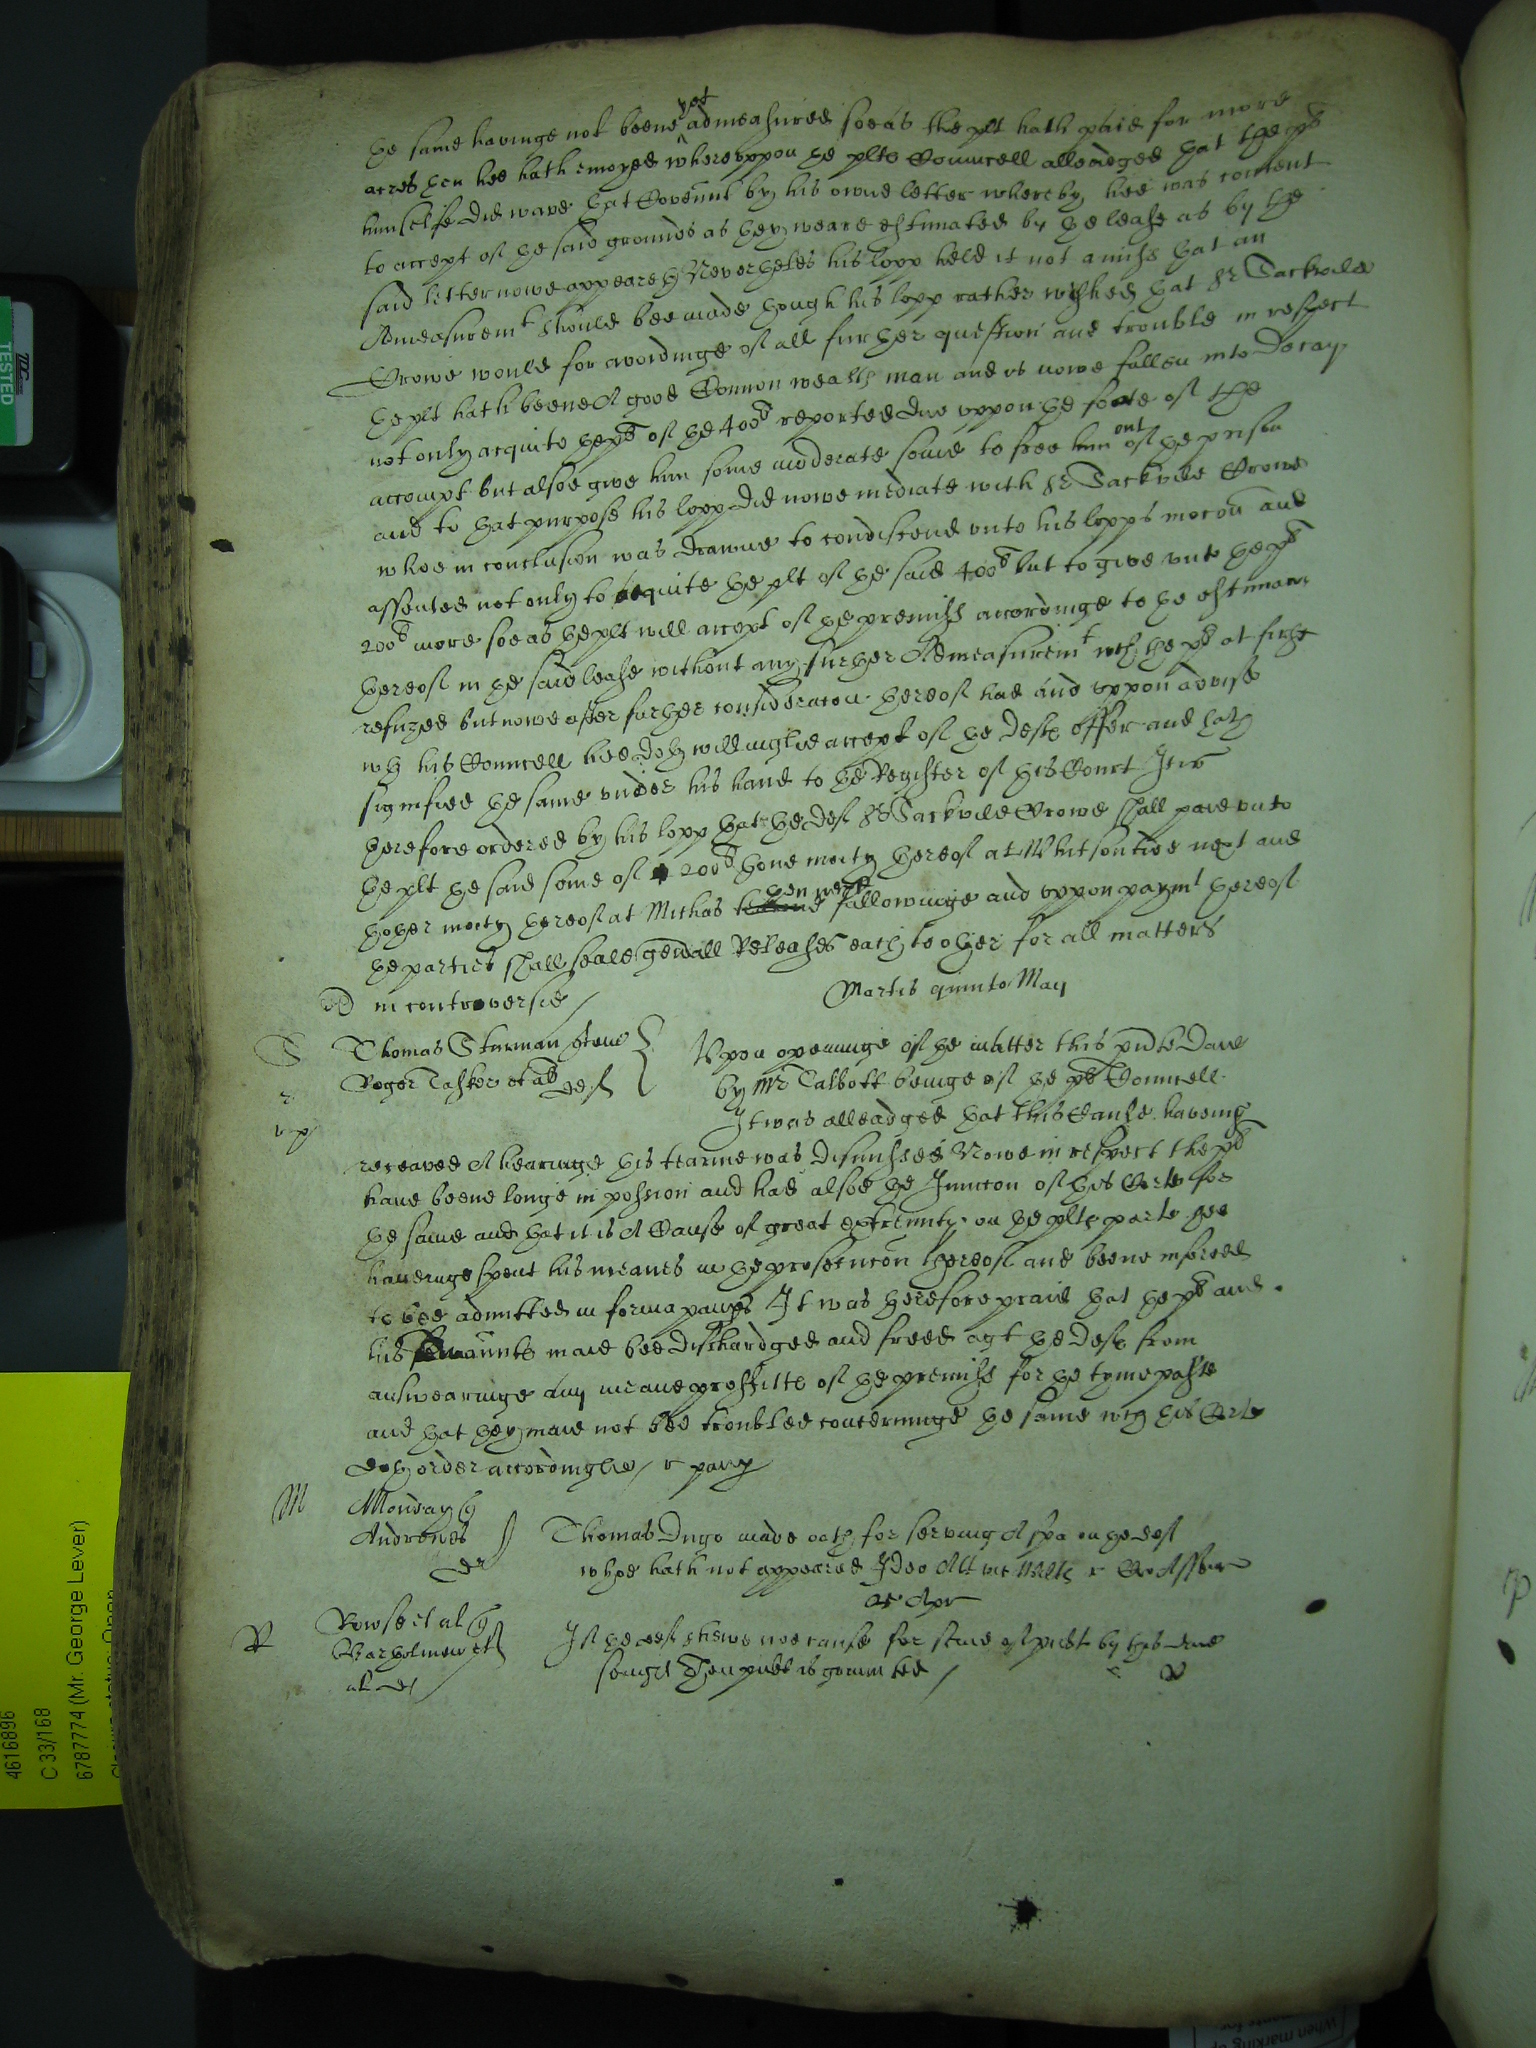 the same havinge not beene yet admeasured soe as the plt hath paid for more
acres then hee hath enioyed whereuppon the plts Councell alleadged that the plt
himselfe did wave that Covennt by his owne letter whereby hee was content
to accept of the said grounds as they weare estimated by the lease as by the
said letter nowe appeareth Neverthelesse his lopp held it not amisse that an
Admeasuremt should bee made though his lopp rather wished that Sr Sackvile
Crowe would for avoidinge of all further question and trouble in respect
the plt hath beene A good Common wealth man and is nowe fallen into Decay
not only acquite the plt of the 400l reported due uppon the foote of the
accompt but alsoe give him some moderate some to free him out of the prison
and to that purpose his lopp did nowe mediate with Sr Sackvile Crowe
whoe in conclusion was drawne to condiscend unto his lopps mocon and
assented not only to acquite the plt of the said 400l but to give unto the plt
200l more soe as the plt will accept of the premiss accordinge to the estimacon
thereof in the said lease without any further Admeasuremt wch the plt at first
refuzed but nowe after further consideracon thereof had and uppon advise
wth his Councell hee doth willinglie accept of the Defts offer and hath
signified the same under his hand to the Register of this Court It is
therefore ordered by his lopp that the Deft Sr Sackvile Crowe shall paie unto
the plt the said some of 200l thone moity thereof at Whitsontide next and
thother moity thereof at Michas then next followinge and uppon paymt thereof
the parties shall seale genrall Releases each to other for all matters
in controversie /
Martis quinto May
S
r
Thomas Sturman
Roger Tasker et al def
Upon openinge of the matter this pnte Daie
by Mr Talbott beinge of the plts Councell
It was alleadged that this Cause haveing
receaved A hearinge this tearme was dismissed Nowe in respect the plt
have beene longe in possion and had alsoe the Iniuncon of this Corte for
the same and that it is A Cause of great extremity on the plts parte hee
haveinge spent his meanes in the prosecucon thereof and beene inforced
to bee admitted in forma paupis It was therefore praied that the plt and
his maie bee dischardged and freed agt the Defts from
answearinge any meane proffitts of the premiss for the tyme paste
and that they maie not bee troubled concerninge the same wch this Corte
doth order accordinglie / paup
M
Monday
Andrewes
def
Thomas made oath for serving A spa on the deft
whoe hath not appeared Ideo Att
R
Rowse et al
Bartholmew et
al def
If the deft shewe noe cause for staie of publ by this daie
sennight Then publ is graunted /
TESTED
4616896
C 33/168
6787774 (Mr. George Lever)